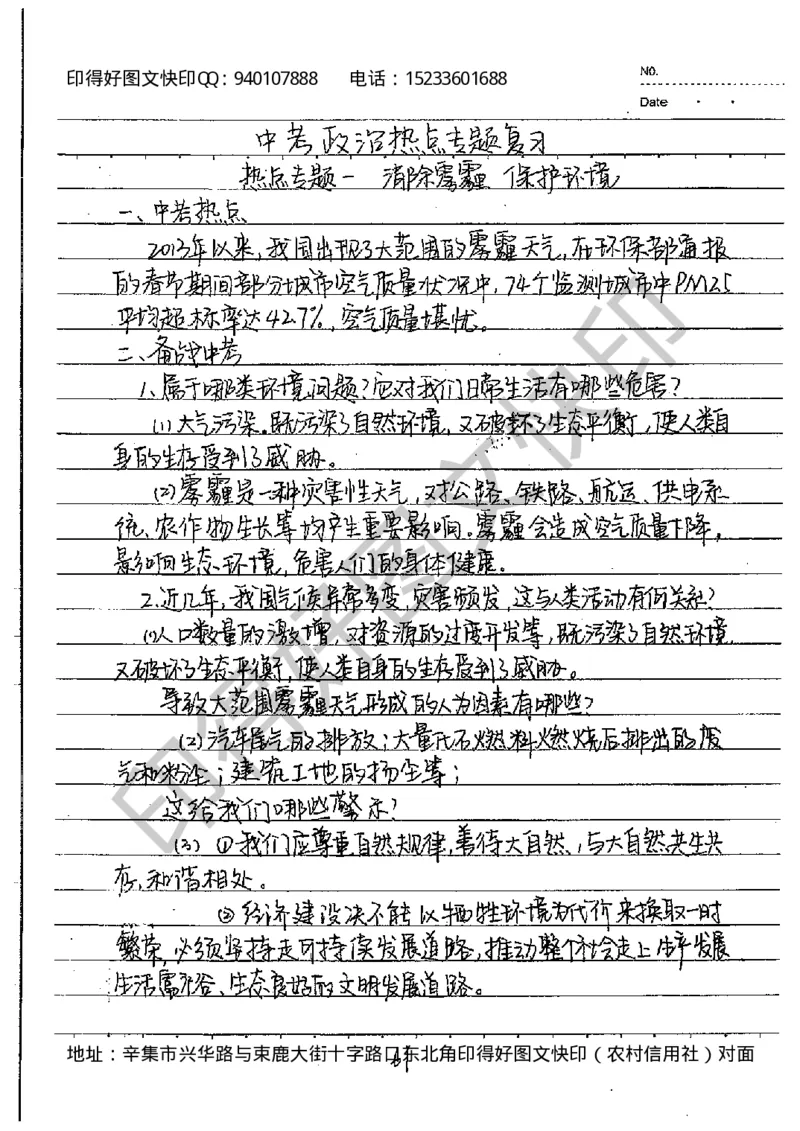 印得好图文快印QQ：940107888 电话：15233601688
No.
Date
中考政治热点专题复习
热点专题一 消除雾霾 保护环境
一、中考热点
2013年以来,我国出现了大范围的雾霾天气,在环保部通报
的春节期间部分城市空气质量状况中,74个监测城市中PM2.5
平均超标率达42.7%,空气质量堪忧。
二、备战中考
1、属于哪类环境问题?应对我们日常生活有哪些危害?
(1)大气污染。既污染了自然环境,又破坏了生态平衡,使人类自
身的生存受到了威胁。
(2)雾霾是一种灾害性天气,对公路、铁路、航运、供电系
统、农作物生长等均产生重要影响。雾霾会造成空气质量下降,
影响生态环境,危害人们的身体健康。
2.近几年,我国气候异常多变,灾害频发,这与人类活动有何关系?
(1)人口数量的激增,对资源的过度开发等,既污染了自然环境,
又破坏了生态平衡,使人类自身的生存受到了威胁。
导致大范围雾霾天气形成的人为因素有哪些?
(2)汽车尾气的排放;大量化石燃料燃烧后排出的废
气和粉尘;建筑工地的扬尘等;
这给我们哪些警示?
(3)①我们应尊重自然规律,善待大自然,与大自然共生共
存,和谐相处。
②经济建设决不能以牺牲环境为代价来换取一时
繁荣,必须坚持走可持续发展道路,推动整个社会走上生产发展
生活富裕、生态良好的文明发展道路。
地址：辛集市兴华路与束鹿大街十字路口东北角印得好图文快印（农村信用社）对面
印得好图文快印